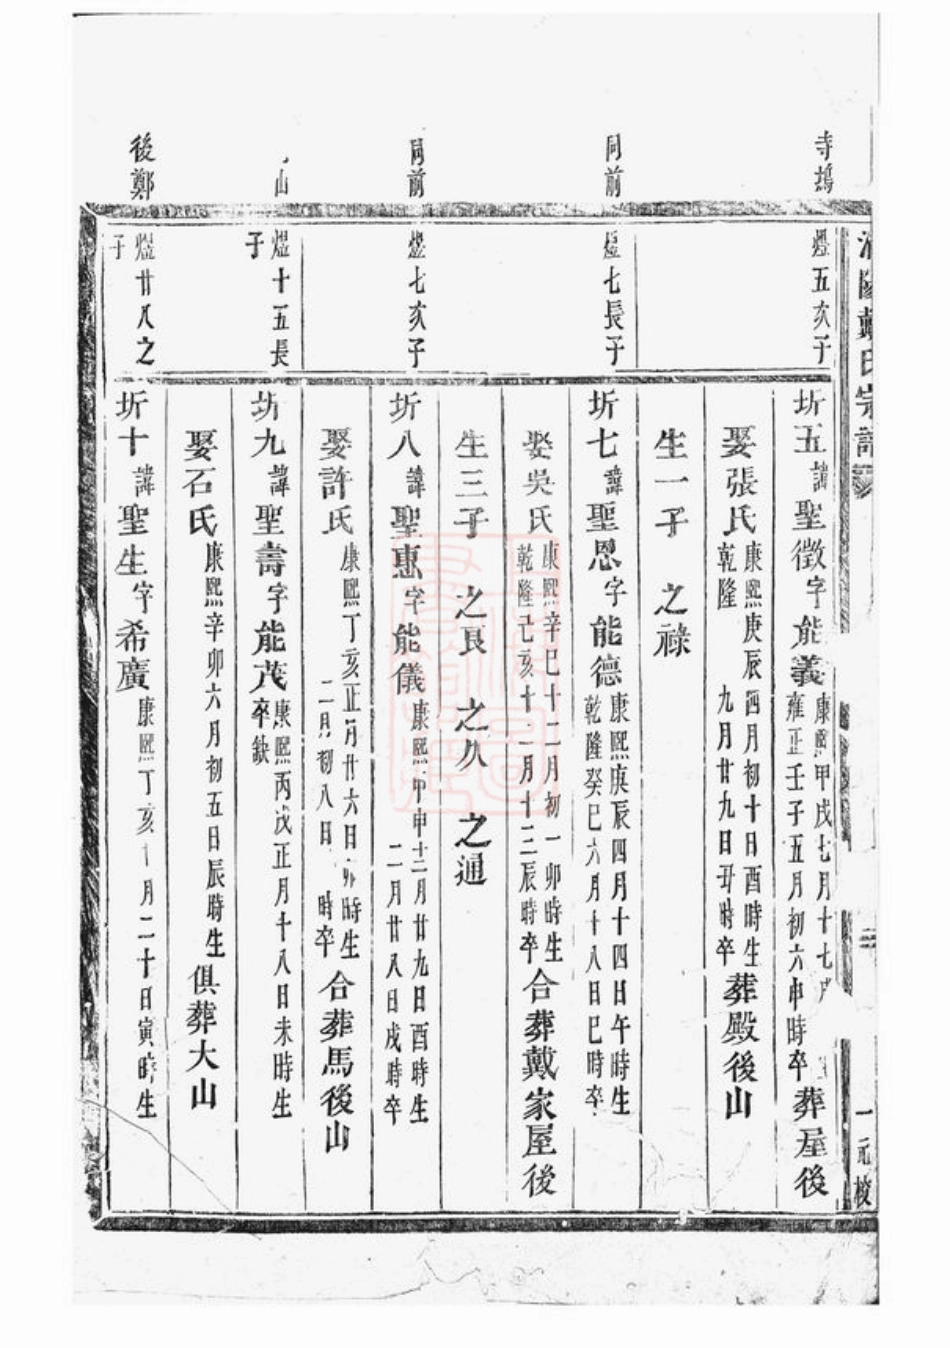 氏宗譜
二
一元校
寺塢
燈五次子
圻五諱聖徵字能義康熙甲戌七月十七
雍正壬子五月初六申時卒葬屋後
娶張氏康熙庚辰四月初十日酉時生
乾隆 九月廿九日丑時卒葬殿後山
生一子 之祿
同前
煃七長子
圻七諱聖恩字能德康熙庚辰四月十四日午時生
乾隆癸巳六月十八日巳時卒
娶吳氏康熙辛巳十二月初一卯時生
乾隆己亥十一月十三辰時卒合葬戴家屋後
生三子 之良 之久 之通
同前
七次子
圻八諱聖惠字能儀康熙甲申十二月廿九日酉時生
二月廿八日戌時卒
娶許氏康熙丁亥正月廿六日卯時生
二月初八日 時卒合葬馬後山
山
煜十五長子
圻九諱聖壽字能茂康熙丙戌正月十八日未時生
卒缺
娶石氏康熙辛卯六月初五日辰時生俱葬大山
後鄭
煜廿八之子
圻十諱聖生字希廣康熙丁亥十月二十日寅時生